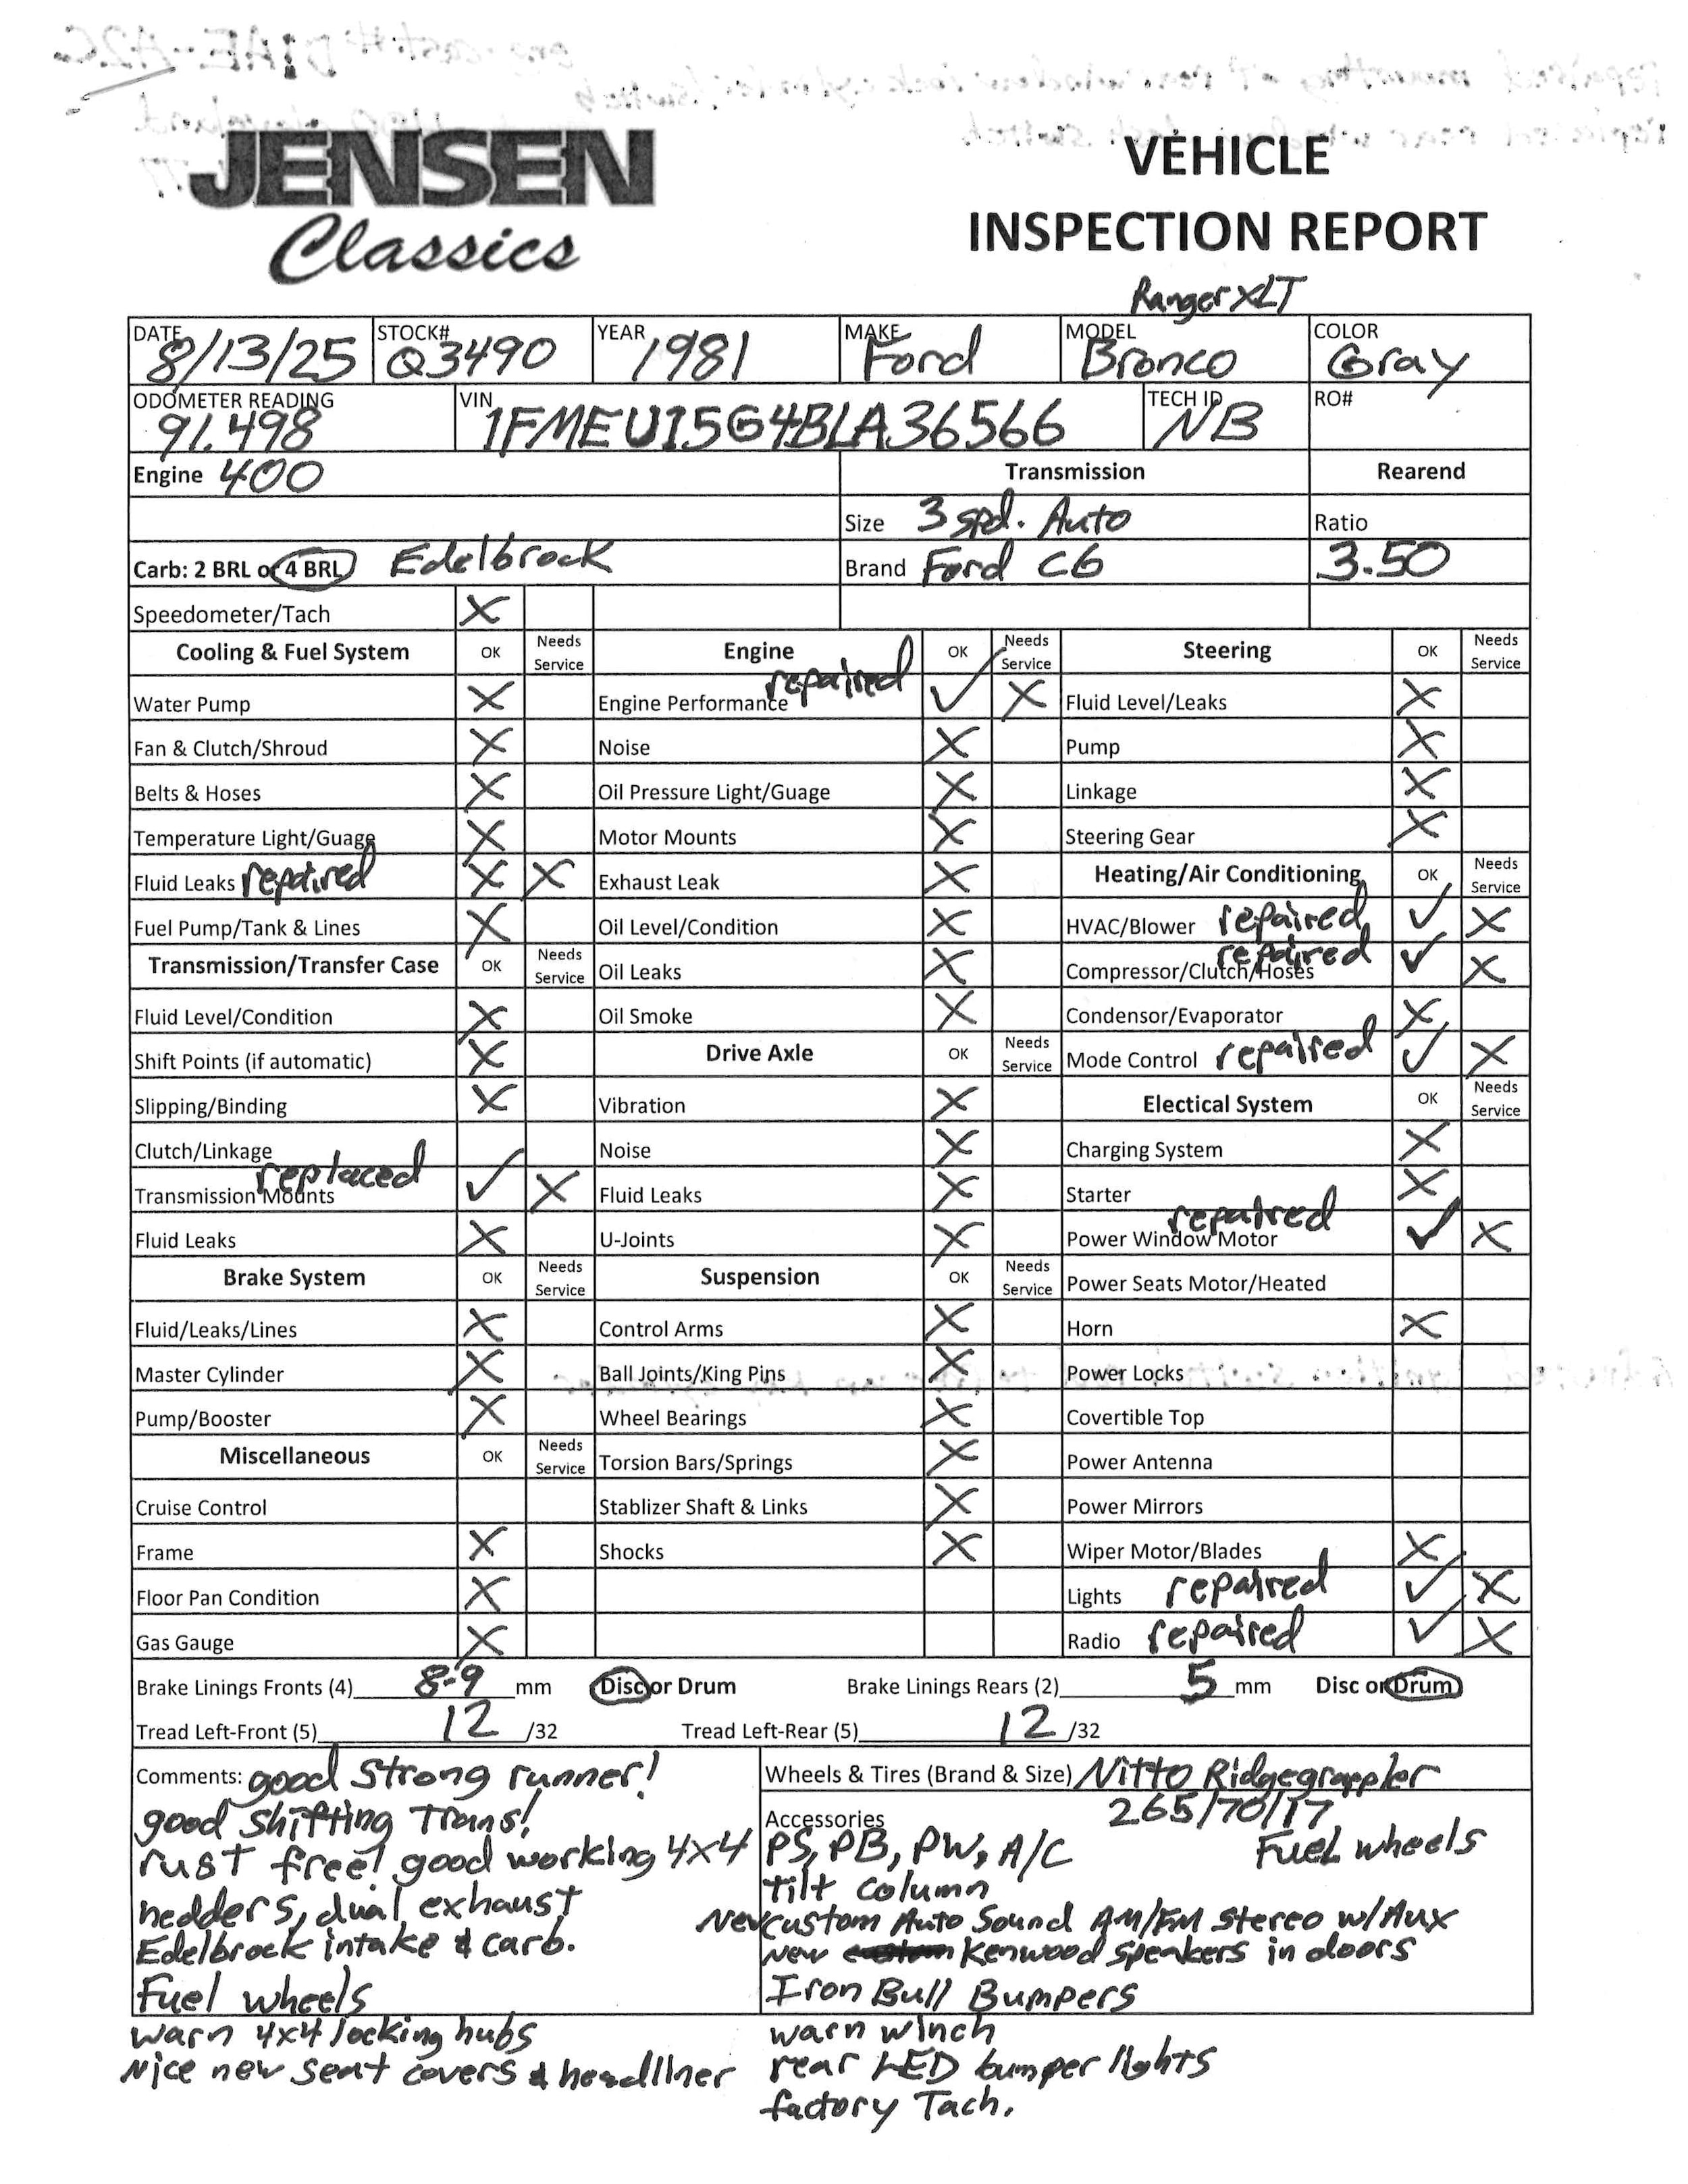 JENSEN
Classics
VEHICLE
INSPECTION REPORT
Ranger XLT
DATE 8/13/25 STOCK# Q3490 YEAR 1981 MAKE Ford MODEL Bronco COLOR Gray
ODOMETER READING 91.498 VIN 1FMEU15G4BLA36566 TECH ID NB RO#
Engine 400 Transmission Rearend
Size 3 spd. Auto Ratio
Carb: 2 BRL or 4 BRL Edelbrock Brand Ford C6 3.50
Speedometer/Tach X
Cooling & Fuel System OK Needs Service Engine OK Needs Service Steering OK Needs Service
Water Pump X Engine Performance repaired ✓ X Fluid Level/Leaks X
Fan & Clutch/Shroud X Noise X Pump X
Belts & Hoses X Oil Pressure Light/Guage X Linkage X
Temperature Light/Guage X Motor Mounts X Steering Gear X
Fluid Leaks repaired X X Exhaust Leak X Heating/Air Conditioning OK Needs Service
Fuel Pump/Tank & Lines X Oil Level/Condition X HVAC/Blower repaired ✓ X
Transmission/Transfer Case OK Needs Service Oil Leaks X Compressor/Clutch/Hoses repaired ✓ X
Fluid Level/Condition X Oil Smoke X Condensor/Evaporator X
Shift Points (if automatic) X Drive Axle OK Needs Service Mode Control repaired ✓ X
Slipping/Binding X Vibration X Electical System OK Needs Service
Clutch/Linkage Noise X Charging System X
Transmission Mounts replaced ✓ X Fluid Leaks X Starter X
Fluid Leaks X U-Joints X Power Window Motor repaired ✓ X
Brake System OK Needs Service Suspension OK Needs Service Power Seats Motor/Heated
Fluid/Leaks/Lines X Control Arms X Horn X
Master Cylinder X Ball Joints/King Pins X Power Locks
Pump/Booster X Wheel Bearings X Covertible Top
Miscellaneous OK Needs Service Torsion Bars/Springs X Power Antenna
Cruise Control Stablizer Shaft & Links X Power Mirrors
Frame X Shocks X Wiper Motor/Blades X
Floor Pan Condition X Lights repaired ✓ X
Gas Gauge X Radio repaired ✓ X
Brake Linings Fronts (4) 8-9 mm Disc or Drum Brake Linings Rears (2) 5 mm Disc or Drum
Tread Left-Front (5) 12 /32 Tread Left-Rear (5) 12 /32
Comments: good strong runner!
good shifting Trans!
rust free! good working 4x4
hedders, dual exhaust
Edelbrock intake & carb.
Fuel wheels
warn 4x4 locking hubs
Nice new seat covers & headliner
Wheels & Tires (Brand & Size) Nitto Ridgegrappler
265/70/17
Accessories
Fuel wheels
PS, PB, PW, A/C
tilt column
New custom Auto Sound AM/FM stereo w/Aux
New Kenwood speakers in doors
Iron Bull Bumpers
warn winch
rear LED bumper lights
factory Tach.